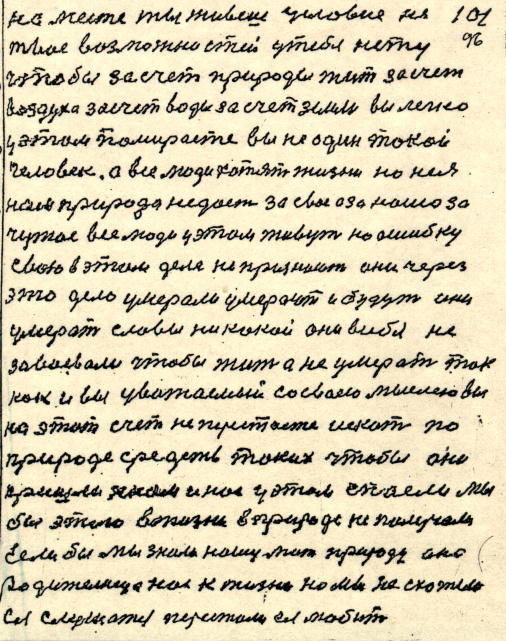 на месте ты живеш условие не 101
твое возможностей утебя нету 96
чтобы засчет природы жит засчет
воздуха засчет воды засчет земли вы легко
уэтом помираете вы не один токой
человек. а все люди хотят жизни но нея
нам природа недает за свое аза нашо за
чужое все люди уэтом живут но ошибку
свою вэтом деле не признают они через
это дело умерали умерают и будут они
умерат славы никокой они всебя не
завоевали чтобы жит а не умерат так
как и вы уважаемый сосваею мыслею вы
на этот счет не перестаете искат по
природе средств таких чтобы они
пришли кнам и нас уэтом спасли мы
бы этаго вжизни вприроде не получали
Если бы мы знали нашу мат природу она
Родителница нас к жизни но мы не схотели
ся слершатся перестали ея любит